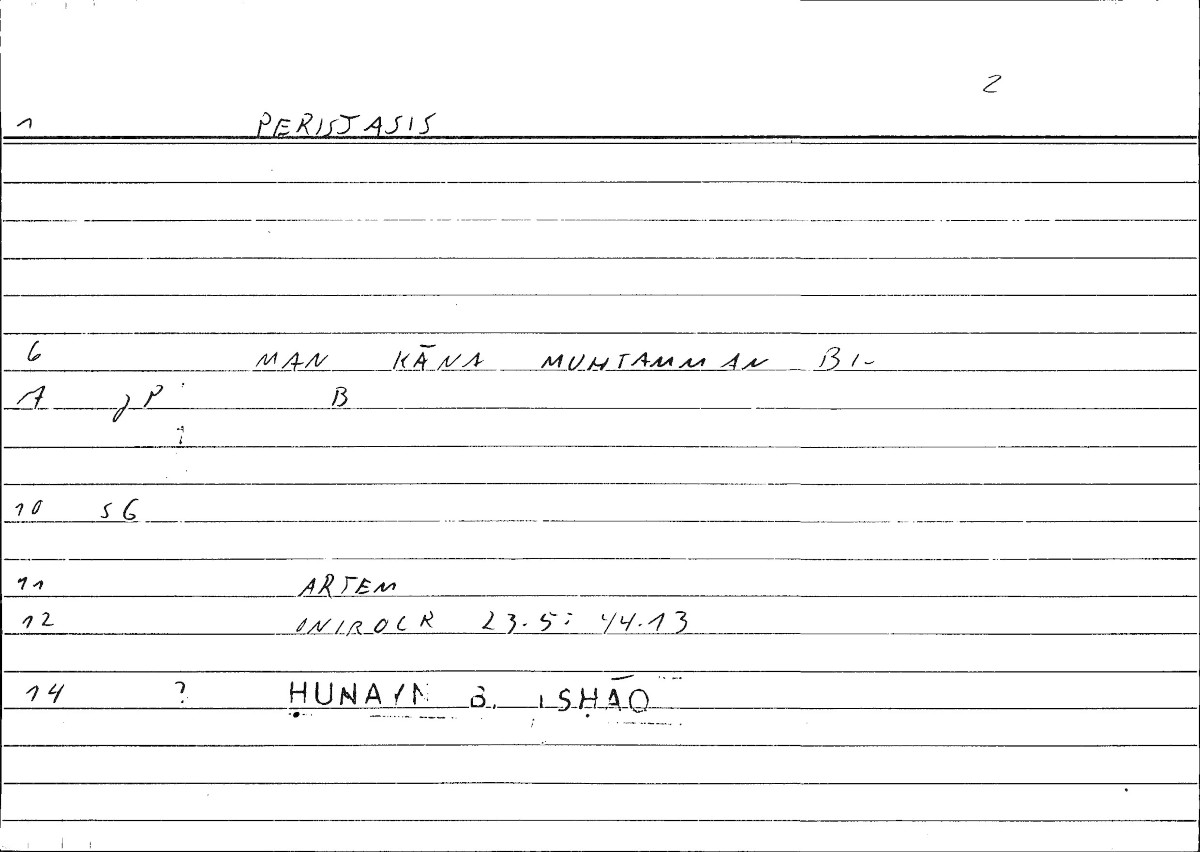 2
1 PERISTASIS
6 MAN KĀNA MUHTAMMAN BI-
7 gP B
10 SG
11 ARTEM
12 ONIROCR 23.5: 44.13
14 ? ḤUNAYN B. ISḤĀQ